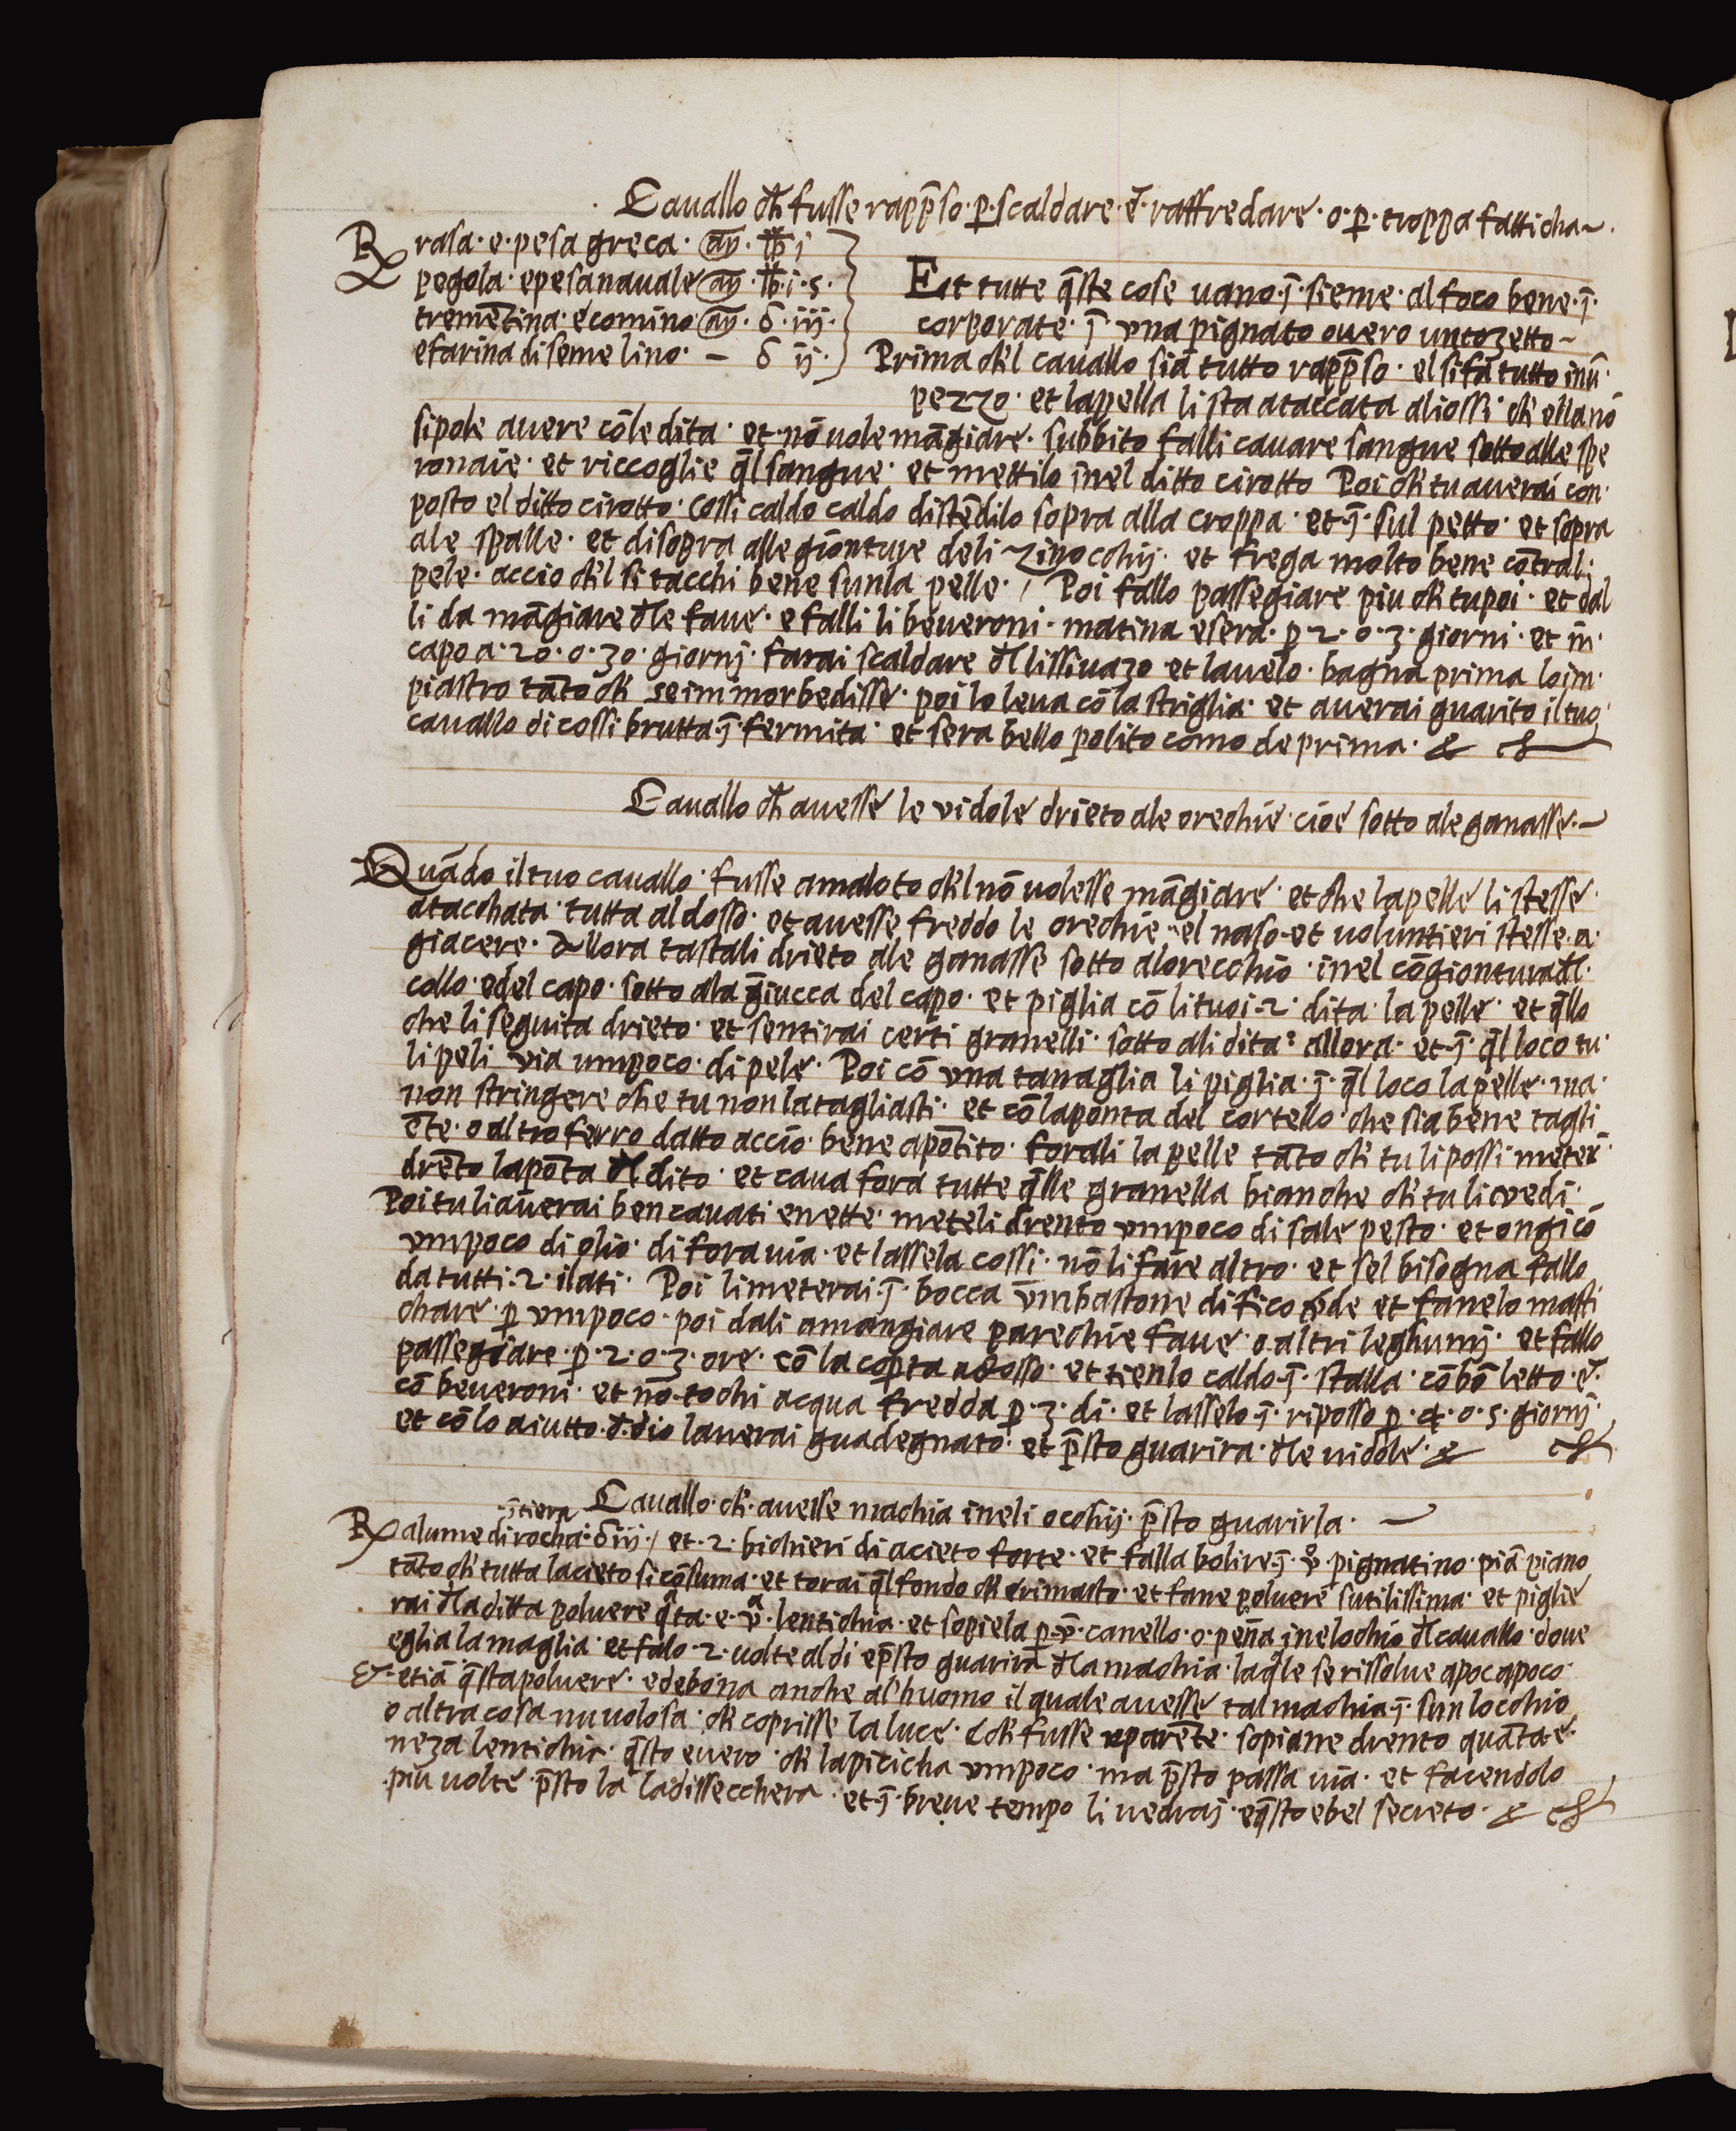 Cauallo ch̄ fusse rapp̄so · p̱ · scaldare · e · raffredare · o · p̱ · troppa fatticha ~
℞ rasa · e · pesa greca · aȳ · lb j
pegola · e pesa nauale aȳ · lb · i · s ·
tremētina · e comino aȳ · δ · iij ·
e farina di seme lino · — δ ij ·
Eet tutte q̄ste cose uano · j̄ · sieme · al foco bene · j̄ ·
corporate · j̄ · vna pignato ouero un tozetto ~
Prima ch'l cauallo sia tutto rapp̄so · el si fa tutto inū ·
pezzo · et la pella li sta ataccata ali ossi · ch' ella nō
si pole auere cō le dita · et nō uole māgiare · subbito falli cauare sangue sotto alle spe
ronaie · et riccoglie q̄l sangue · et mettilo inel ditto cirotto Poi ch' tu auerai con ·
posto el ditto cirotto · cossi caldo caldo distēdilo sopra alla croppa · et · j̄ · sul petto · et sopra
ale spalle · et disopra alle gionture deli zinocchij · et frega molto bene cōtrali
pele · accio ch'l si tacchi bene sun la pelle · / Poi fallo passegiare piu ch' tu poi · et dal
li da māgiare d̄le faue · e falli li beueroni · matina e sera · p̱ 2 · o · 3 · giorni · et in ·
capo a · 20 · o · 30 · giornj · farai scaldare d̄l lissiuazo et lauelo · bagna prima lo im ·
piastro tāto ch' se immorbedisse · poi lo leua cō la striglia · et auerai guarito il tuo
cauallo di cossi brutta · j̄ · fermita · et sera bello polito como de prima · &
Cauallo ch̄ auesse le vidole drieto ale orechie · cioe sotto ale ganasse · —
Quādo il tuo cauallo · fusse amalato ch'l nō uolesse māgiare · et che la pelle li stesse ·
atacchata · tutta al dosso · et auesse freddo le orechie · el naso · et voluntieri stesse · a ·
giacere · Allora tastali drieto ale ganasse sotto al orecchio · inel cōgiontura d̄l ·
collo · e del capo · sotto ala giucca del capo · et piglia cō li tuoi · 2 · dita · la pelle · et q̄llo
che li seguita drieto · et sentirai certi granelli · sotto ali dita · allora · et · j̄ · q̄l loco tu ·
li peli via umpoco · di pele · Poi cō vna tanaglia li piglia · j̄ · q̄l loco la pelle · ma ·
non stringere che tu non la tagliasti · et cō la ponta del cortello · che sia bene tagli
ēte · o altro ferro datto accio · bene apōtito · forali la pelle tāto ch' tu li possi meter̄ ·
drēto la pōta d̄l dito · et caua fora tutte q̄lle granella bianche ch' tu li vedi ·
Poi tu li auerai ben cauati e nette · meteli drento vmpoco di sale pesto · et ongi cō
vmpoco di olio · di fora uia · et lassela cossi · nō li fare altro · et sel bisogna fallo
da tutti · 2 · i lati · Poi li meterai · j̄ · bocca vm bastone di fico v̄de et fanelo masti
chare · p̱ vmpoco · poi dali amangiare parechie faue · o altri leghumj · et fallo
passegiare · p̱ · 2 · o · 3 · ore · cō la cop̱ta adosso · et tienlo caldo · j̄ · stalla · cō bō letto · e ·
cō beueroni · et nō tochi acqua fredda p̱ · 3 · di · et lasselo · j̄ · riposso p̱ · 4 · o · 5 · giornj ·
et cō lo aiutto · d̄ · dio lauerai guadegnato · et p̄sto guarira · d̄le uidole · &
Cauallo · ch' · auesse machia ineli occhij · p̄sto guarirla · —
j̄tiera
℞ alume di rocha · δ iij · / et · 2 · bichieri di acieto forte · et falla bolire · j̄ · v̊ · pignatino · piā piano
tāto ch' tutta lacieto si cōsuma · et torai q̄l fondo ch' e rimasto · et fane poluere sutilissima · et piglie
rai d̄la ditta poluere qᵃta · e · vᵃ · lentichia · et sopiela p̱ · v̄ · canello · o · peña inelochio d̄l cauallo · doue
eglia la maglia · et falo · 2 · uolte al di e p̄sto guarira d̄la machia · la q̄le se rissolue apoc apoco ·
& · etiā q̄sta poluere · e de bona anche al' huomo il quale auesse tal machia · j̄ · sun locchio
o altra cosa nuuolosa · ch' coprisse la luce · & ch' fusse aparēte · sopiane drento quāta · e ·
neza lentichia · q̄sto e uero · ch' la picicha vmpoco · ma p̄sto passa uia · et facendolo
piu uolte · p̄sto la la dissecchera · et · j̄ · breue tempo li uedraj · e q̄sto e bel secreto · &